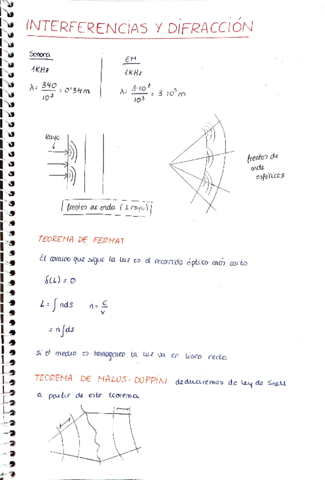 INTERFERENCIAS Y DIFRACCIÓN
Sonora
1KHz
λ = 340 / 10³ = 0'34 m
EM
1KHz
λ = 3·10⁸ / 10³ = 3·10⁵ m
Rayo
frentes de onda (⊥ rayo)
frentes de
onda
esféricos
TEOREMA DE FERMAT
El camino que sigue la luz es el recorrido óptico más corto
δ(L) = 0
L = ∫ n ds n = c / v
= n ∫ ds
Si el medio es homogéneo la luz va en línea recta.
TEOREMA DE MALUS-DUPPIN deduciremos de ley de Snell
a partir de este teorema.